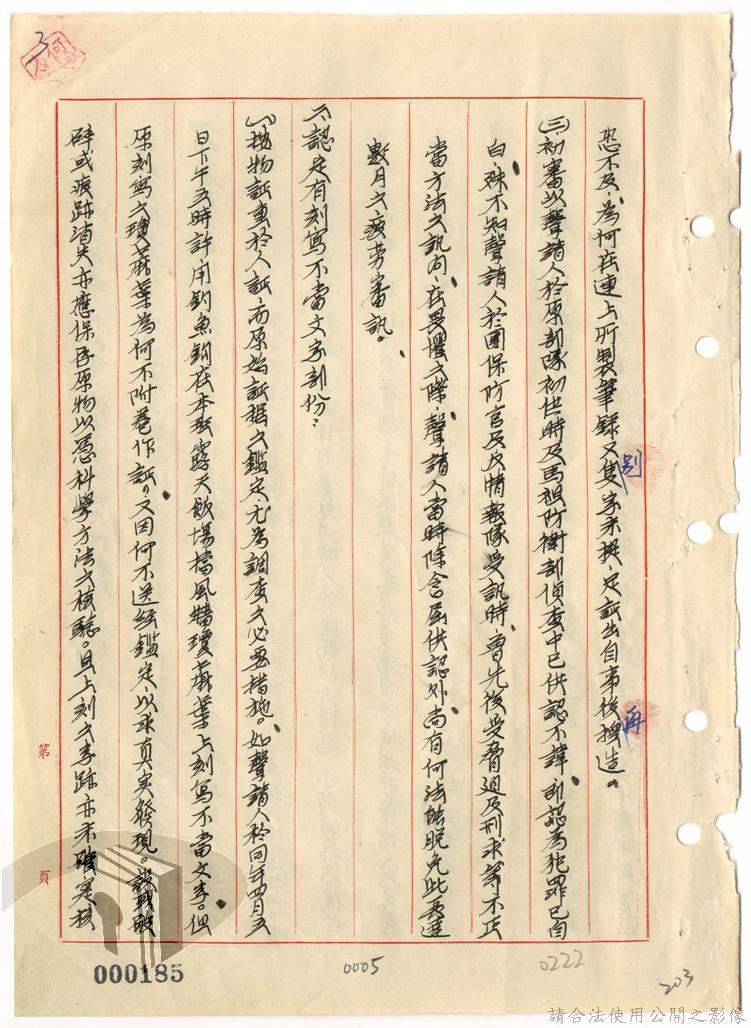 恐不及，為何在連上所製筆錄又隻字未提，足証出自事後揑造。
㈢初審以聲請人於原部隊初供時及馬祖防衛部偵查中已供認不諱，則認為犯罪已自
白，殊不知聲請人於團保防官及反情報隊受訊時，曾先後受脅迫及刑求等不正
當方法之訊問，在畏懼之際，聲請人當時除含屈供認外，尚有何法能脫免此長達
數月之疲勞審訊。
六、認定有刻寫不當文字部份：
㈠按物証重於人証，而原始証據之鑑定，尤為調查之必要措施。如聲請人於同年四月五
日下午五時許用釣魚鈎在本部露天飯場檔風牆瓊麻葉上刻寫不當文字。但
原刻寫之瓊麻葉為何不附卷作証。又因何不送經鑑定，以求真實發現。設或破
碎或痕跡消失亦應保存原物以憑科學方法之核驗。且上刻之字跡亦未確定核
別
再
第
頁
3
000185
0005
0222
203
請合法使用公開之影像